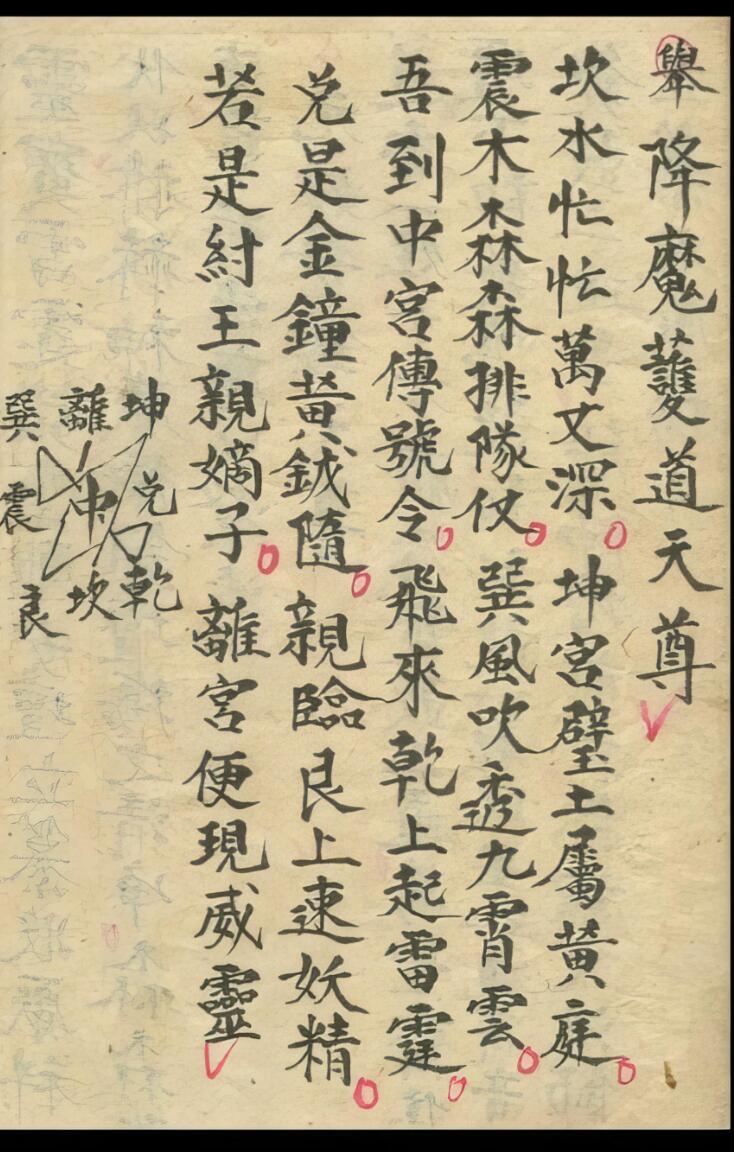 舉降魔護道天尊
坎水忙忙萬丈深坤宮壁土屬黃庭
震木森森排隊仗巽風吹透九霄雲
吾到中宮傳號令飛來乾上起雷霆
兌是金鐘黃鉞隨親臨艮上速妖精
若是紂王親嫡子離宮便現威靈
坤
離
巽
兌
中
震
乾
坎
艮